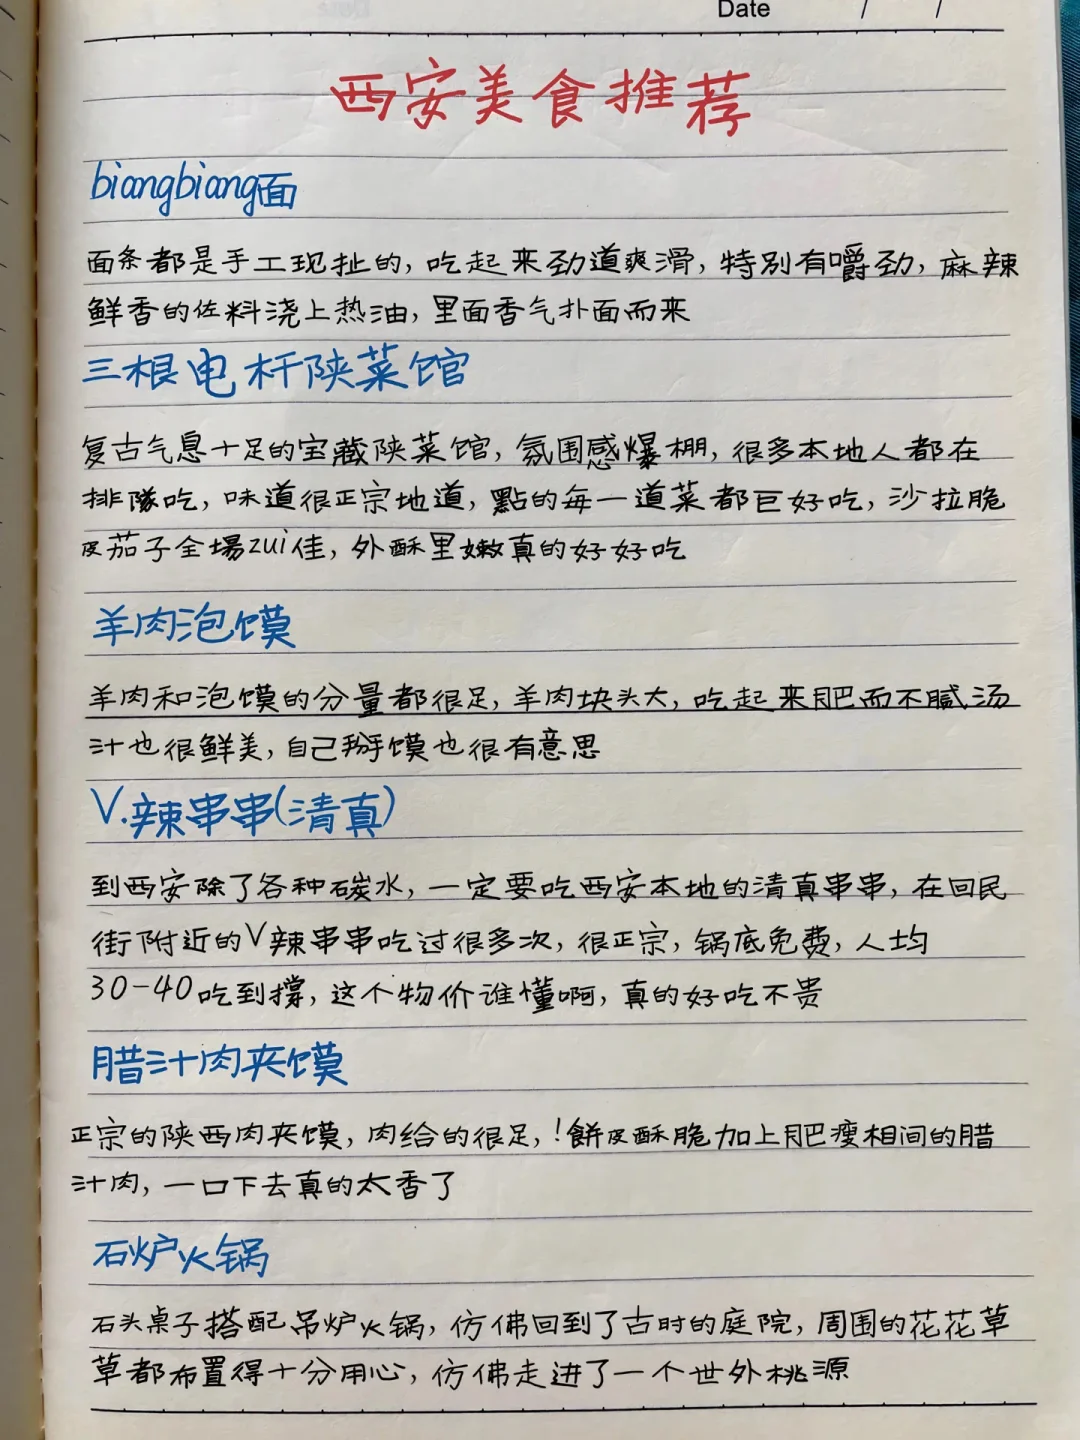 Date / /
西安美食推荐
biangbiang面
面条都是手工现扯的,吃起来劲道爽滑,特别有嚼劲,麻辣
鲜香的佐料浇上热油,里面香气扑面而来
三根电杆陕菜馆
复古气息十足的宝藏陕菜馆,氛围感爆棚,很多本地人都在
排隊吃,味道很正宗地道,點的每一道菜都巨好吃,沙拉脆
皮茄子全場zui佳,外酥里嫩真的好好吃
羊肉泡馍
羊肉和泡馍的分量都很足,羊肉块头大,吃起来肥而不腻汤
汁也很鲜美,自己掰馍也很有意思
V.辣串串(清真)
到西安除了各种碳水,一定要吃西安本地的清真串串,在回民
街附近的V辣串串吃过很多次,很正宗,锅底免费,人均
30-40吃到撐,这个物价谁懂啊,真的好吃不贵
腊汁肉夹馍
正宗的陕西肉夹馍,肉给的很足,!餅皮酥脆加上肥瘦相间的腊
汁肉,一口下去真的太香了
石炉火锅
石头桌子搭配吊炉火锅,仿佛回到了古时的庭院,周围的花花草
草都布置得十分用心,仿佛走进了一个世外桃源